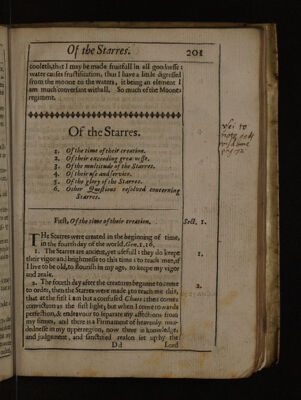 Of the Starres.
201
cooleth, that I may be made fruitfull in all goodnesse:
water causes fructification, thus I have a little digressed
from the moone to the waters, it being an element I
am much conversant withall. So much of the Moones
regiment.
Of the Starres.
1. Of the time of their creation.
2. Of their exceeding
3. Of the multitude of the Starres.
4. Of their use and service.
5. Of the glory of the Starres.
6. Other Questions resolved concerning
Starres.
First, Of the time of their creation.
Sect. 1.
THe Starres were created in the beginning of time,
in the fourth day of the world, Gen. 1. 16.
1. The Starres are ancient, yet usefull: they do keepe
1.
their vigor and brightnesse to this time: to teach me, if
I live to be old, to flourish in my age, to keepe my vigor
and zeale.
2. The fourth day after the creatures beganne to come
2.
to order, then the Starres were made: to teach me this,
that at the first I am but a confused Chaos: then comes
conviction as the first light; but when I come towards
perfection, & endeavour to separate my affections from
my sinnes, and there is a Firmament of heavenly
in my upper region, now there is knowledge,
and judgement, and sanctified reason set up by the
Dd
Lord